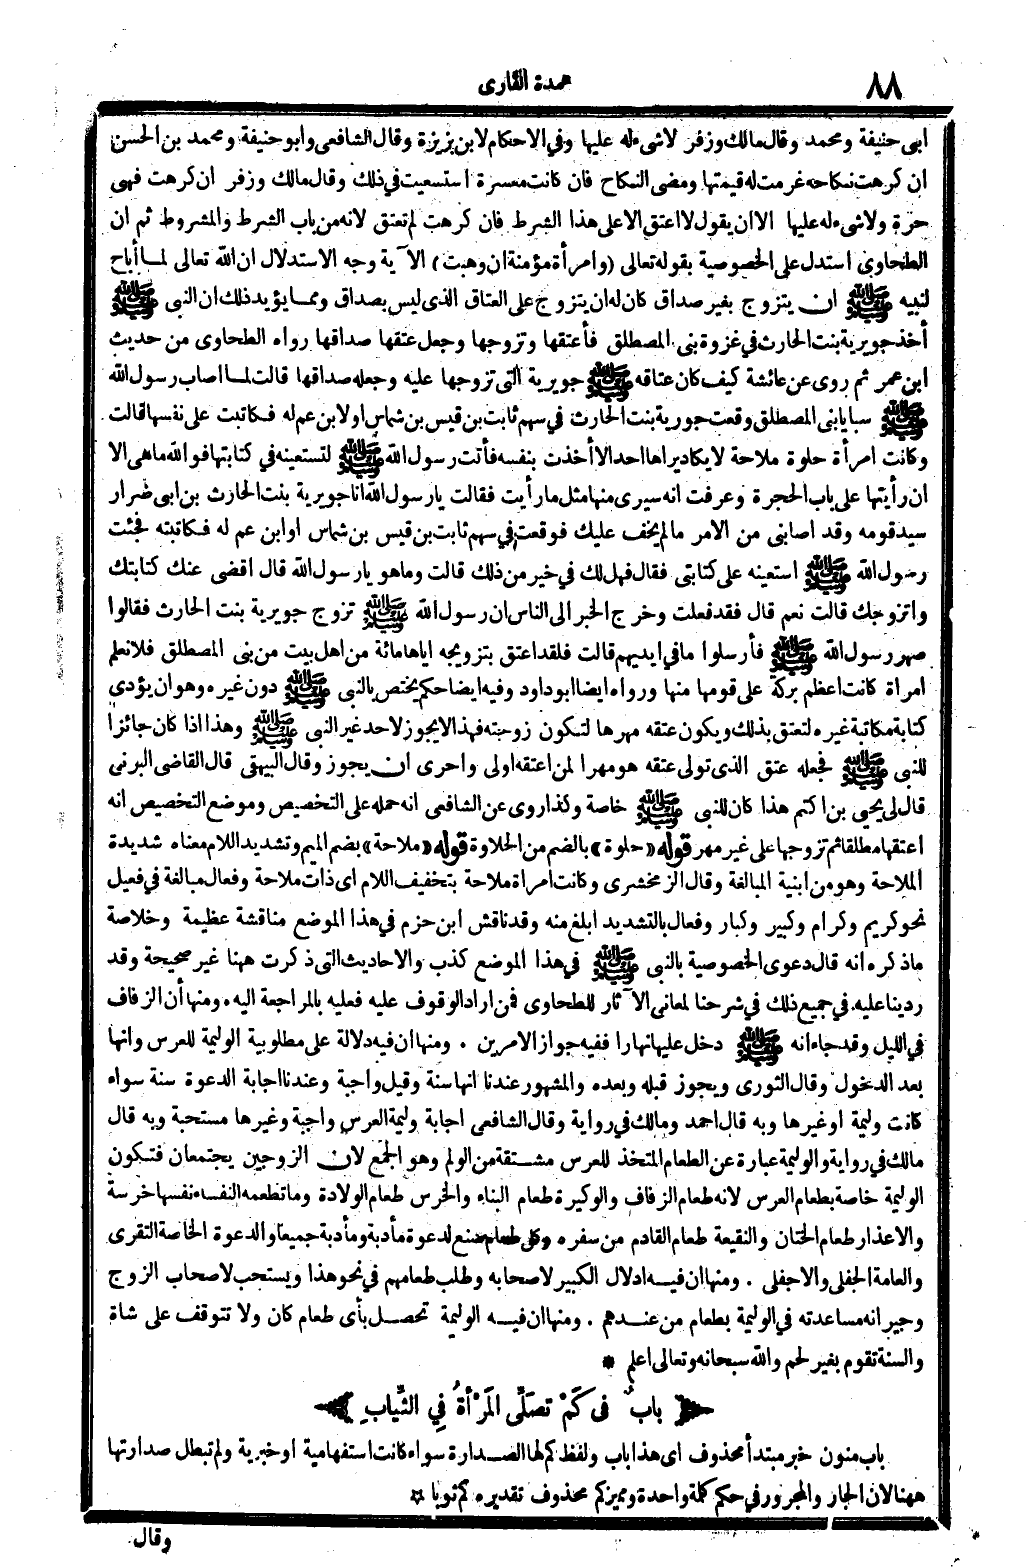 ٨٨
عمدة القارى
ابى حنيفة ومحمد وقال مالك وزفر لاشىء له عليها وفي الاحكام لابن بزيزة وقال الشافعى وابو حنيفة ومحمد بن الحسن
ان كرهت نكاحه غرمت له قيمتها ومضى النكاح فان كانت معسرة استسعيت في ذلك وقال مالك وزفر ان كرهت فهى
حرة ولاشىء له عليها الا ان يقول لا اعتق الا على هذا الشرط فان كرهت لم تعتق لانه من باب الشرط والمشروط ثم ان
الطحاوى استدل على الخصوصية بقوله تعالى (وامرأة مؤمنة ان وهبت) الآية وجه الاستدلال ان الله تعالى لما أباح
لنبيه ﷺ ان يتزوج بغير صداق كان له ان يتزوج على العتاق الذى ليس بصداق ومما يؤيد ذلك ان النبى ﷺ
أخذ جويرية بنت الحارث في غزوة بنى المصطلق فأعتقها وتزوجها وجعل عتقها صداقها رواه الطحاوى من حديث
ابن عمر ثم روى عن عائشة كيف كان عتاقه ﷺ جويرية التى تزوجها عليه وجعله صداقها قالت لما اصاب رسول الله
ﷺ سبايا بنى المصطلق وقعت جورية بنت الحارث في سهم ثابت بن قيس بن شماس او لابن عم له فكاتبت على نفسها قالت
وكانت امرأة حلوة ملاحة لا يكاد يراها احد الا أخذت بنفسه فأتت رسول الله ﷺ لتستعينه في كتابتها فوالله ما هى الا
ان رأيتها على باب الحجرة وعرفت انه سيرى منها مثل ما رأيت فقالت يا رسول الله انا جويرية بنت الحارث بن ابى ضرار
سيد قومه وقد اصابنى من الامر ما لم يخف عليك فوقعت في سهم ثابت بن قيس بن شماس او ابن عم له فكاتبته فجئت
رسول الله ﷺ استعينه على كتابتى فقال فهل لك في خير من ذلك قالت وما هو يا رسول الله قال اقضى عنك كتابتك
واتزوجك قالت نعم قال فقد فعلت وخرج الخبر الى الناس ان رسول الله ﷺ تزوج جويرية بنت الحارث فقالوا
صهر رسول الله ﷺ فأرسلوا ما في ايديهم قالت فلقد اعتق بتزويجه اياها مائة من اهل بيت من بنى المصطلق فلا نعلم
امراة كانت اعظم بركة على قومها منها ورواه ايضا ابو داود وفيه ايضا حكم يختص بالنبى ﷺ دون غيره وهو ان يؤدى
كتابة مكاتبة غيره لتعتق بذلك ويكون عتقه مهرها لتكون زوجته فهذا لا يجوز لاحد غير النبى ﷺ وهذا اذا كان جائزا
للنبى ﷺ فجعله عتق الذى تولى عتقه هو مهرا لمن اعتقه اولى واحرى ان يجوز وقال البيهقى قال القاضى البرنى
قال لى يحيى بن اكثم هذا كان للنبى ﷺ خاصة وكذا روى عن الشافعى انه حمله على التخصيص وموضع التخصيص انه
اعتقها مطلقا ثم تزوجها على غير مهر قوله «حلوة» بالضم من الحلاوة قوله «ملاحة» بضم الميم وتشديد اللام معناه شديدة
الملاحة وهو من ابنية المبالغة وقال الزمخشرى وكانت امراة ملاحة بتخفيف اللام اى ذات ملاحة وفعال مبالغة في فعيل
نحو كريم وكرام وكبير وكبار وفعال بالتشديد ابلغ منه وقد ناقش ابن حزم في هذا الموضع مناقشة عظيمة وخلاصة
ما ذكره انه قال دعوى الخصوصية بالنبى ﷺ في هذا الموضع كذب والاحاديث التى ذكرت ههنا غير صحيحة وقد
رددينا عليه في جميع ذلك في شرحنا لمعانى الآثار للطحاوى فمن اراد الوقوف عليه فعليه بالمراجعة اليه ومنها أن الزفاف
في الليل وقد جاء انه ﷺ دخل عليها نهارا ففيه جواز الامرين . ومنها ان فيه دلالة على مطلوبية الوليمة للعرس وانها
بعد الدخول وقال الثورى ويجوز قبله وبعده والمشهور عندنا انها سنة وقيل واجبة وعندنا اجابة الدعوة سنة سواء
كانت وليمة او غيرها وبه قال احمد ومالك في رواية وقال الشافعى اجابة وليمة العرس واجبة وغيرها مستحبة وبه قال
مالك في رواية والوليمة عبارة عن الطعام المتخذ للعرس مشتقة من الولم وهو الجمع لان الزوجين يجتمعان فتكون
الوليمة خاصة بطعام العرس لانه طعام الزفاف والوكيرة طعام البناء والخرس طعام الولادة وما تطعمه النفساء نفسها خرسة
والاعذار طعام الختان والنقيعة طعام القادم من سفره وكل طعام صنع لدعوة مأدبة ومأدبة جميعا والدعوة الخاصة النقرى
والعامة الجفلى والاجفلى . ومنها ان فيه ادلال الكبير لاصحابه وطلب طعامهم في نحو هذا ويستحب لاصحاب الزوج
وجيرانه مساعدته في الوليمة بطعام من عندهم . ومنها ان فيه الوليمة تحصل بأى طعام كان ولا تتوقف على شاة
والسنة تقوم بغير لحم والله سبحانه وتعالى اعلم *
﴿ بابٌ فى كَمْ تصَلَّى المَرْأةُ فِي الثِّيابِ ﴾
باب منون خبر مبتدأ محذوف اى هذا باب ولفظ كم لها الصدارة سواء كانت استفهامية او خبرية ولم تبطل صدارتها
ههنا لان الجار والمجرور في حكم كلمة واحدة ومميز كم محذوف تقديره كم ثوبا ☆
وقال